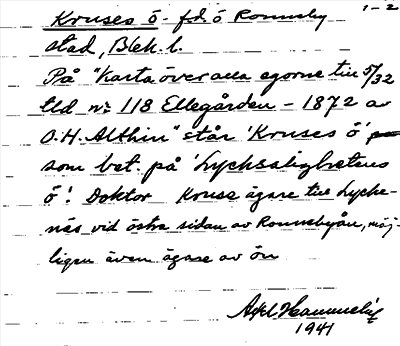 Kruses ö - f.d. ö Ronneby 1-2
stad, Blek. l.
På "Karta över alla egorne till 5/32
tld nr 118 Ellegården - 1872 av
O.H. Althin" står 'Kruses ö'
som bet. på 'Lycksalighetens
ö'. Doktor Kruse ägare till Lycke-
näs vid östra sidan av Ronnebyån, möj-
ligen även ägare av ön
Axel
1941